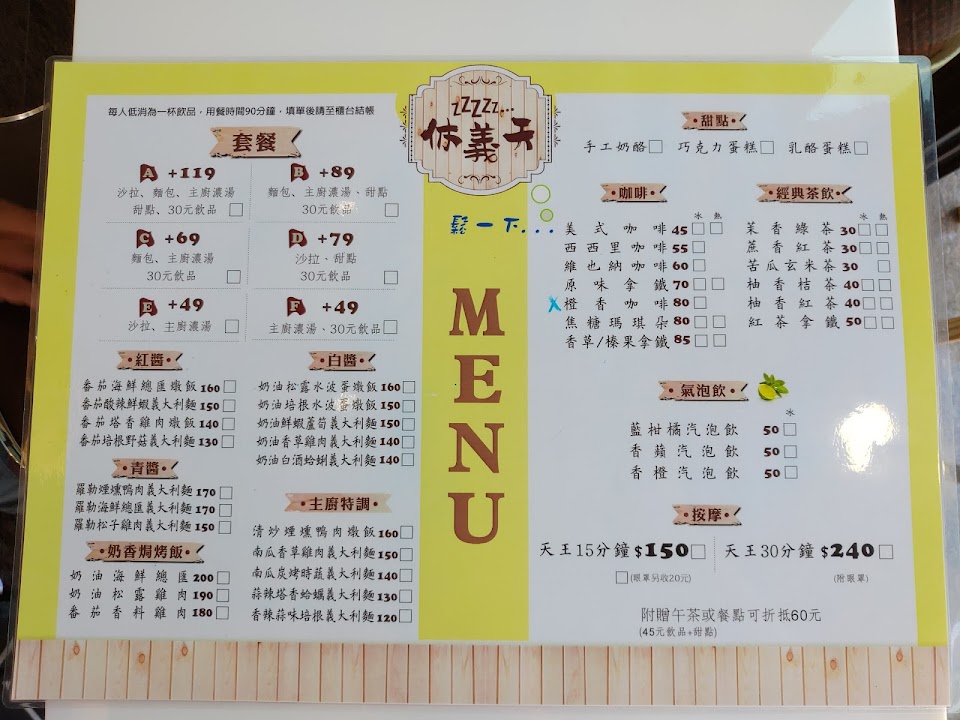 每人低消為一杯飲品，用餐時間90分鐘，填單後請至櫃台結帳
套餐
A +119
沙拉、麵包、主廚濃湯
甜點、30元飲品
B +89
麵包、主廚濃湯、甜點
30元飲品
C +69
麵包、主廚濃湯
30元飲品
D +79
沙拉、甜點
30元飲品
E +49
沙拉、主廚濃湯
F +49
主廚濃湯、30元飲品
紅醬
番茄海鮮總匯燉飯 160
番茄酸辣鮮蝦義大利麵 150
番茄塔香雞肉燉飯 140
番茄培根野菇義大利麵 130
青醬
羅勒煙燻鴨肉義大利麵 170
羅勒海鮮總匯義大利麵 170
羅勒松子雞肉義大利麵 150
奶香焗烤飯
奶油海鮮總匯 200
奶油松露雞肉 190
番茄香料雞肉 180
白醬
奶油松露水波蛋燉飯 160
奶油培根水波蛋燉飯 150
奶油鮮蝦蘆筍義大利麵 150
奶油香草雞肉義大利麵 140
奶油白酒蛤蜊義大利麵 140
主廚特調
清炒煙燻鴨肉燉飯 160
南瓜香草雞肉義大利麵 150
南瓜炭烤時蔬義大利麵 140
蒜辣塔香蛤蠣義大利麵 130
香辣蒜味培根義大利麵 120
ZZZZZ...
休義天
鬆一下...
MENU
甜點
手工奶酪 巧克力蛋糕 乳酪蛋糕
咖啡
冰 熱
美式咖啡 45
西西里咖啡 55
維也納咖啡 60
原味拿鐵 70
x 橙香咖啡 80
焦糖瑪琪朵 80
香草/榛果拿鐵 85
經典茶飲
冰 熱
茉香綠茶 30
蔗香紅茶 30
苦瓜玄米茶 30
柚香桔茶 40
柚香紅茶 40
紅茶拿鐵 50
氣泡飲
冰
藍柑橘汽泡飲 50
香蘋汽泡飲 50
香橙汽泡飲 50
按摩
天王15分鐘 $150
(眼罩另收20元)
天王30分鐘 $240
(附眼罩)
附贈午茶或餐點可折抵60元
(45元飲品+甜點)